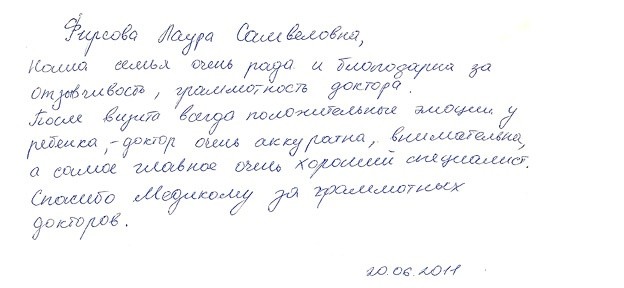 Фирсова Лаура Самвеловна,
наша семья очень рада и благодарна за
отзывчивость, граммотность доктора.
После визита всегда положительные эмоции у
ребенка, - доктор очень аккуратна, внимательна,
а самое главное очень хороший специалист.
Спасибо Медикому за граммотных
докторов.
20.06.2011